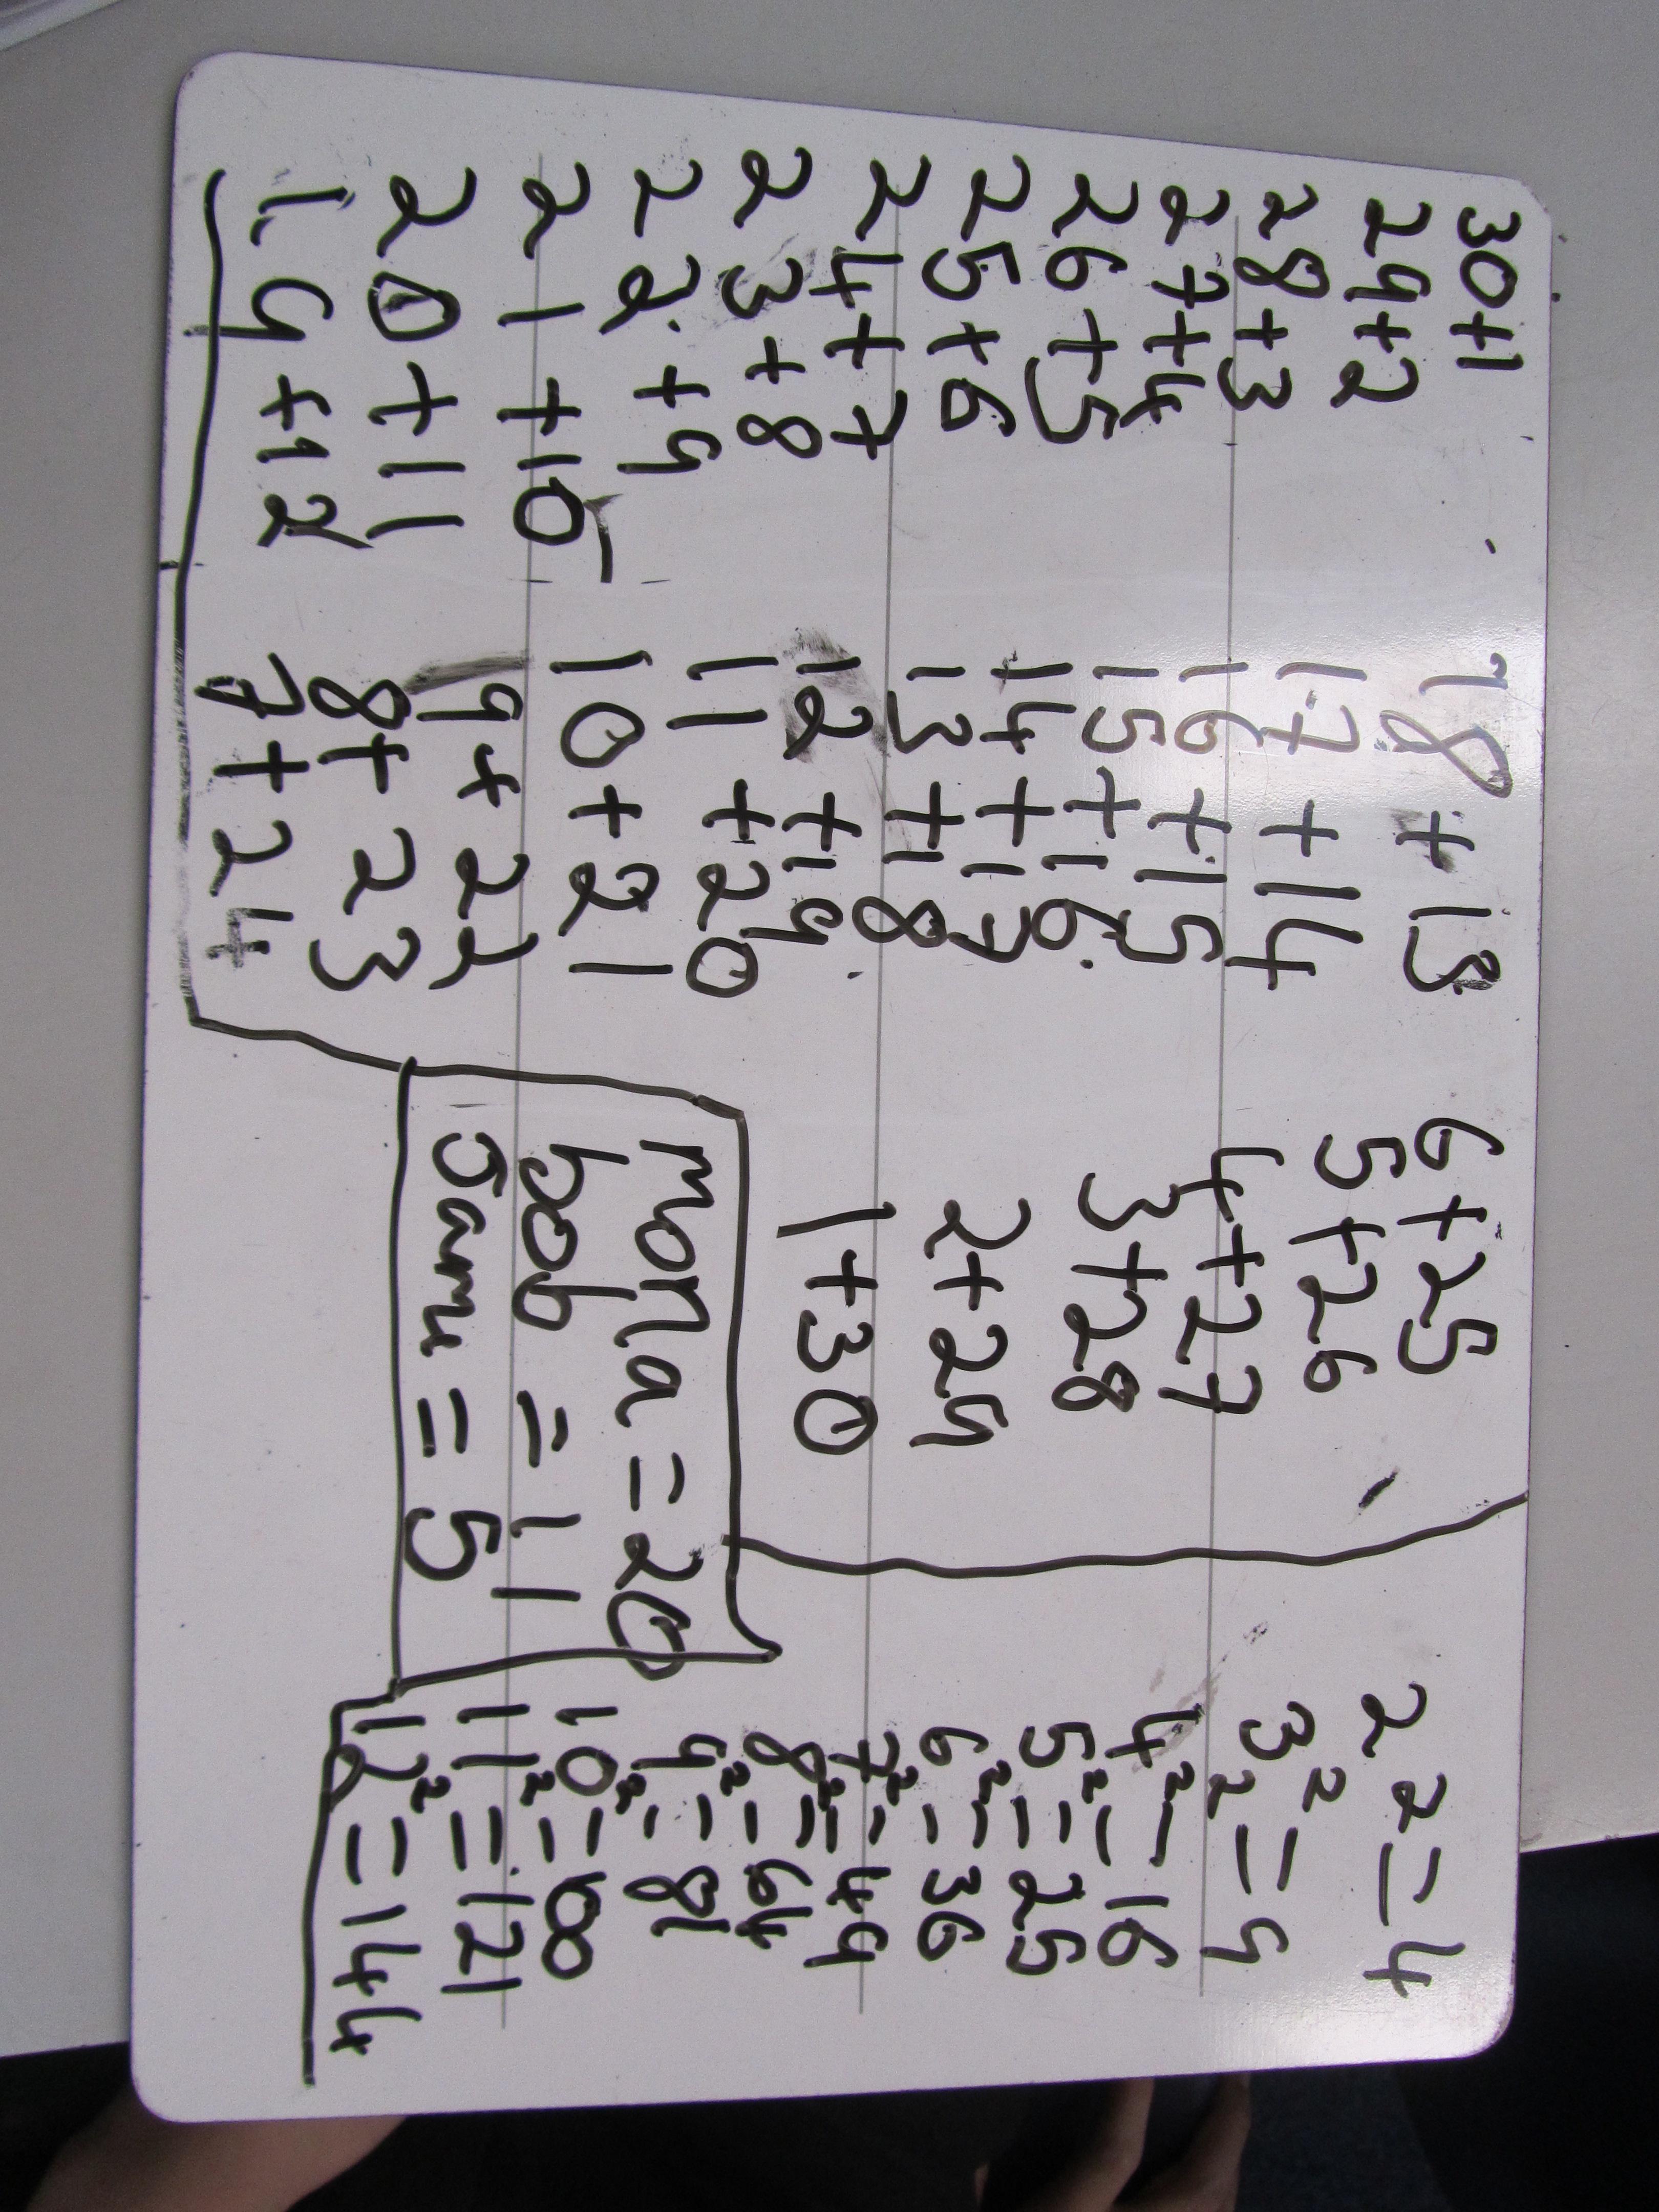 30+1
29+2
28+3
27+4
26+5
25+6
24+7
23+8
22+9
21+10
20+11
19+12
18+13
17+14
16+15
15+16
14+17
13+18
12+19
11+20
10+21
9+22
8+23
7+24
6+25
5+26
4+27
3+28
2+29
1+30
mona = 20
bob = 11
Sam = 5
2²=4
3²=9
4²=16
5²=25
6²=36
7²=49
8²=64
9²=81
10²=100
11²=121
12²=144